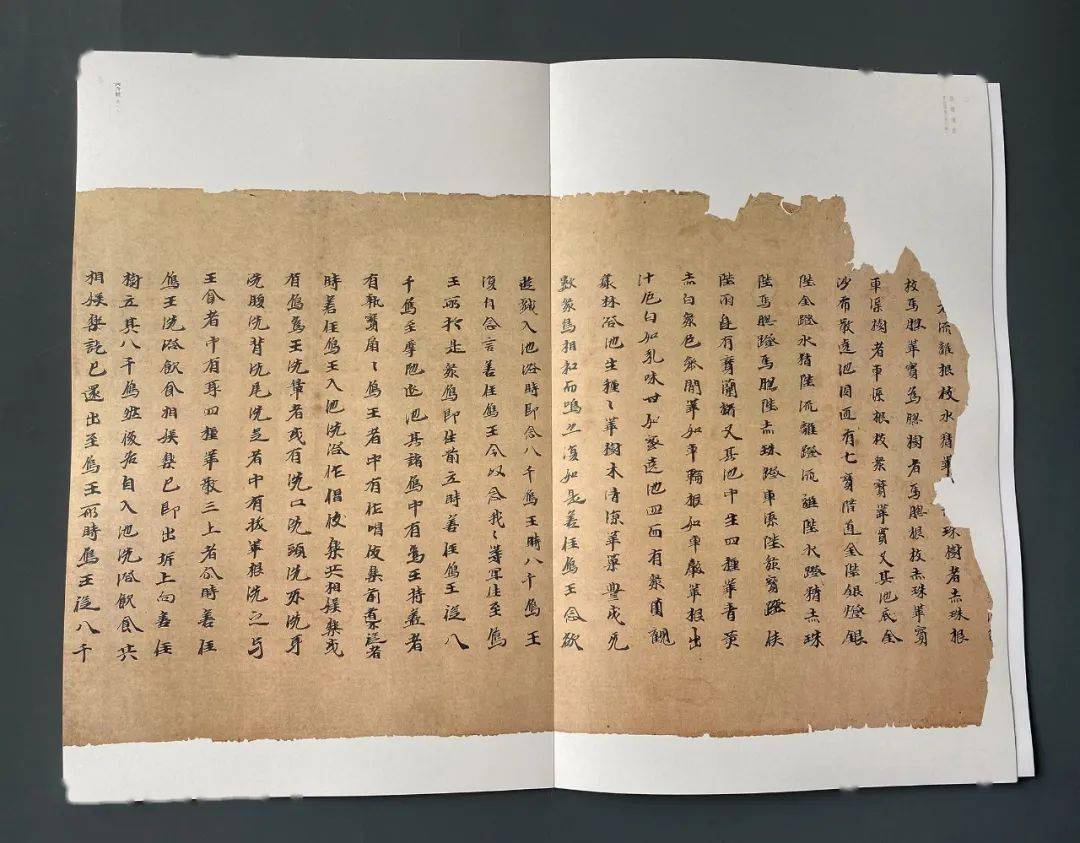 流離根枝水精華 珠樹者赤珠根
枝馬腦華實馬腦樹者馬腦根枝赤珠華實
車渠樹者車渠根枝眾寶華實又其池底金
沙布散遶池迊面有七寶階道金陛銀蹬銀
陛金蹬水精陛流離蹬流離陛水蹬精赤珠
陛馬腦蹬馬腦陛赤珠蹬車渠陛眾寶蹬俠
陛兩邊有寶蘭楯又其池中生四種華青黃
赤白眾色參間華如車輪根如車轂華根出
汁色白如乳味甘如蜜遶池四面有眾園觀
叢林浴池生種〻華樹木清涼華菓豐茂无
數眾鳥相和而鳴亦復如是善住象王念欲
遊戲入池浴時即念八千象王時八千象王
復自念言善住象王今以念我〻等宜往至象
王所於是眾象即往前立時善住象王從八
千象王摩陁延池其諸象中有為王持蓋者
有執寶扇〻象王者中有作唱伎樂前導從者
時善住象王入池洗浴作倡伎樂共相娛樂或
有象為王洗鼻者或有洗口洗頭洗牙洗耳
洗腹洗背洗尾洗足者中有拔華根洗之与
王食者中有取四種華散王上者尒時善住
象王洗浴飲食相娛樂已即出岸上向善住
樹立其八千象然後各自入池洗浴飲食共
相娛樂訖已還出至象王所時象王從八千